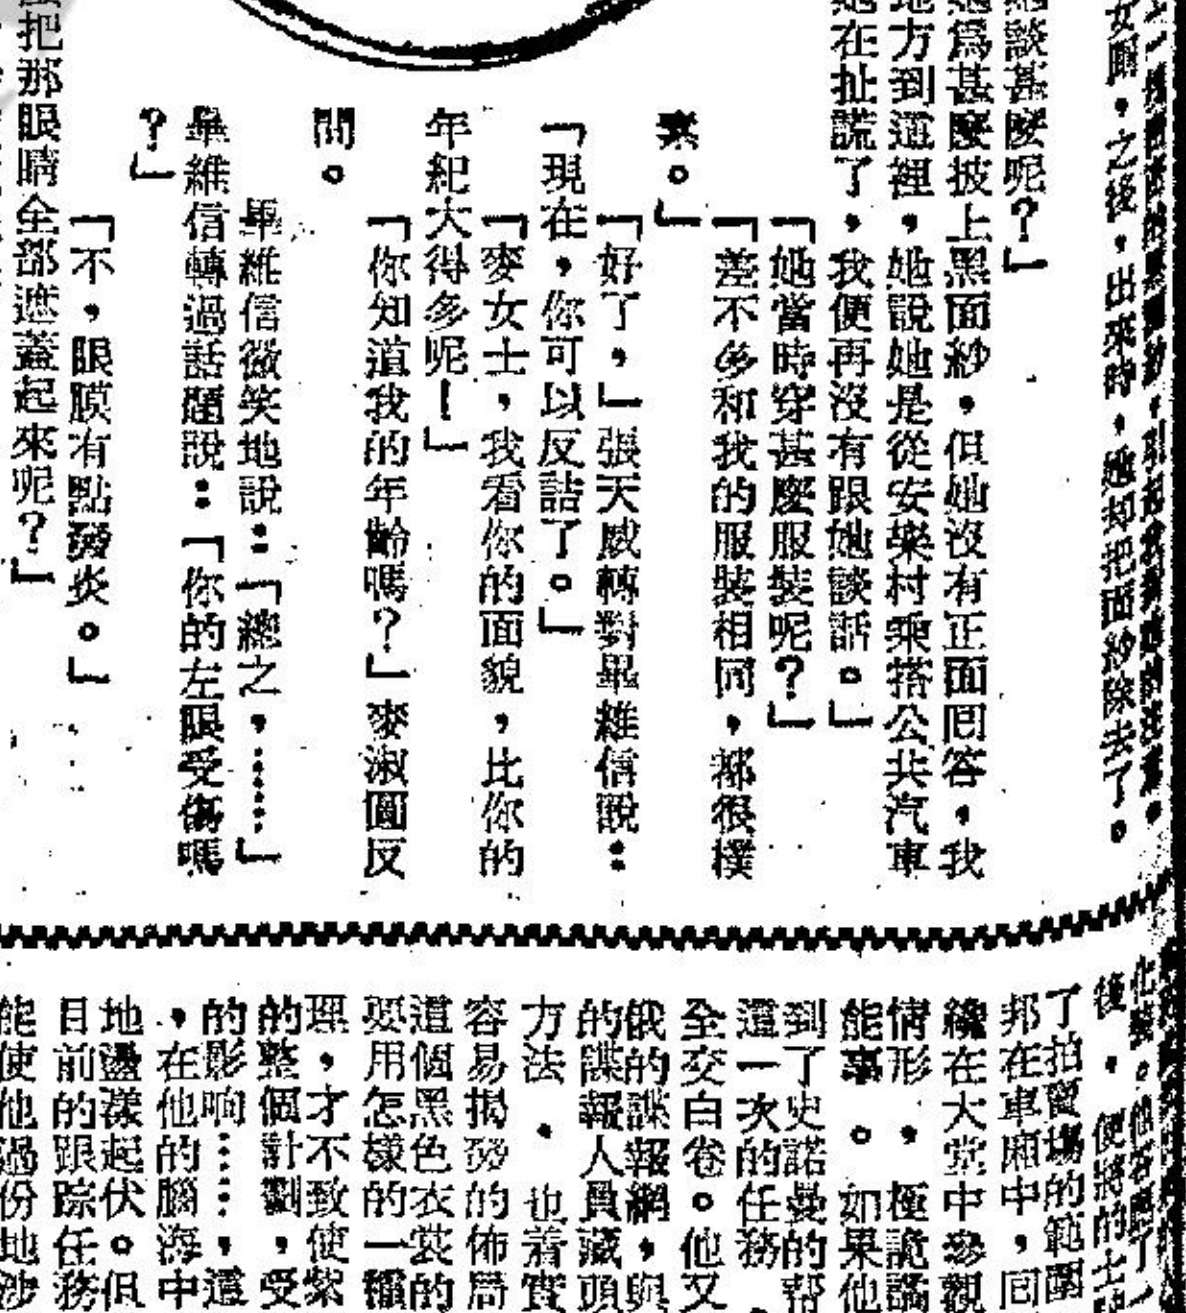 女廁，之後，出來時，她却把面紗除去了。
談甚麼呢？」
爲甚麼披上黑面紗，但她沒有正面囘答，我
地方到這裡，她說她是從安樂村乘搭公共汽車
在扯謊了，我便再沒有跟她談話。」
「她當時穿甚麼服裝呢？」
「差不多和我的服裝相同，都很樸
素。」
「好了，」張天威轉對畢維信說：
「現在，你可以反詰了。」
「麥女士，我看你的面貌，比你的
年紀大得多呢！」
「你知道我的年齡嗎？」麥淑圓反
問。
畢維信微笑地說：「總之，……」
畢維信轉過話題說：「你的左眼受傷嗎
？」
「不，眼膜有點發炎。」
把那眼睛全部遮蓋起來呢？」
後，便將的士
了拍賣場的範圍
邦在車廂中，囘
纔在大堂中參觀
情形，極詭譎
能事。如果他
到了史諾曼的帮
這一次的任務
全交白卷。他又
俄的諜報網，與
的諜報人員藏頭
方法，也着實
容易揭發的佈局
這個黑色衣裳的
要用怎樣的一種
理，才不致使紫
的整個計劃，受
的影响……，這
，在他的腦海中
地盪漾起伏。但
目前的跟踪任務
能使他過份地涉